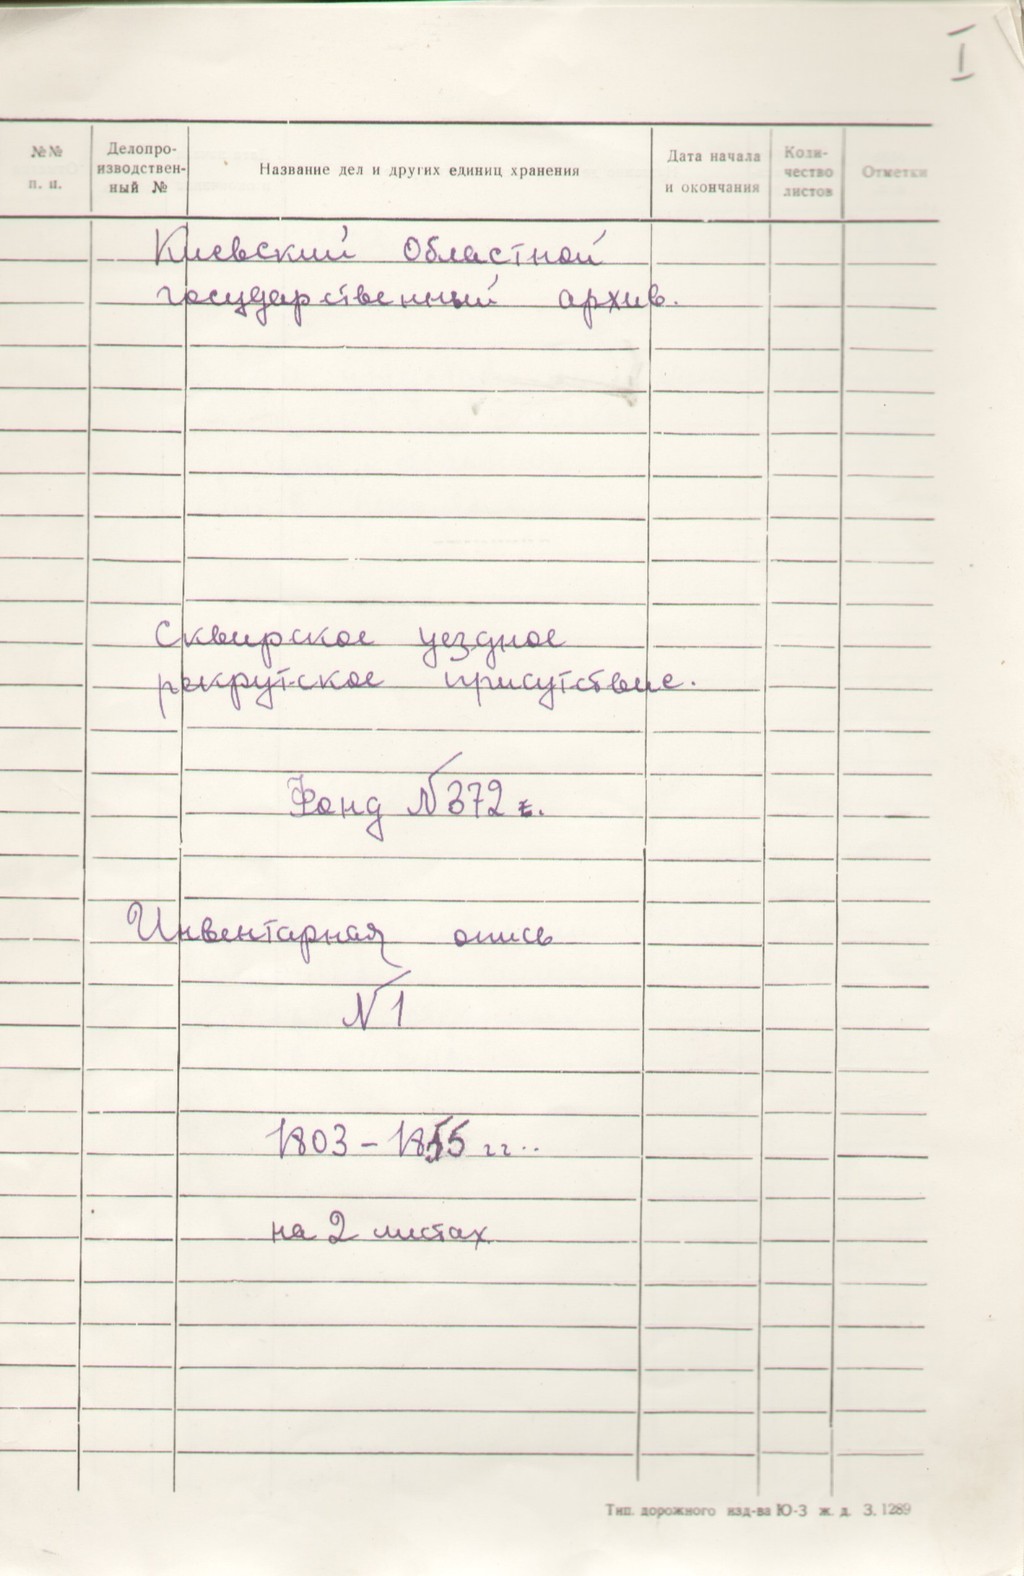 I
№№ п. п.
Делопро-изводствен-ный №
Название дел и других единиц хранения
Дата начала и окончания
Коли-чество листов
Отметки
Киевский Областной
государственный архив.
Сквирское уездное
рекрутское присутствие.
Фонд №372
Инвентарная опись
№1
1803-1855 гг..
на 2 листах
Тип. дорожного изд-ва Ю-З ж. д. З. 1289